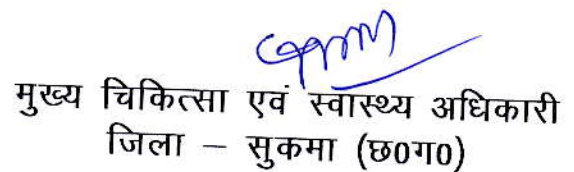 मुख्य चिकित्सा एवं स्वास्थ्य अधिकारी
जिला – सुकमा (छ0ग0)